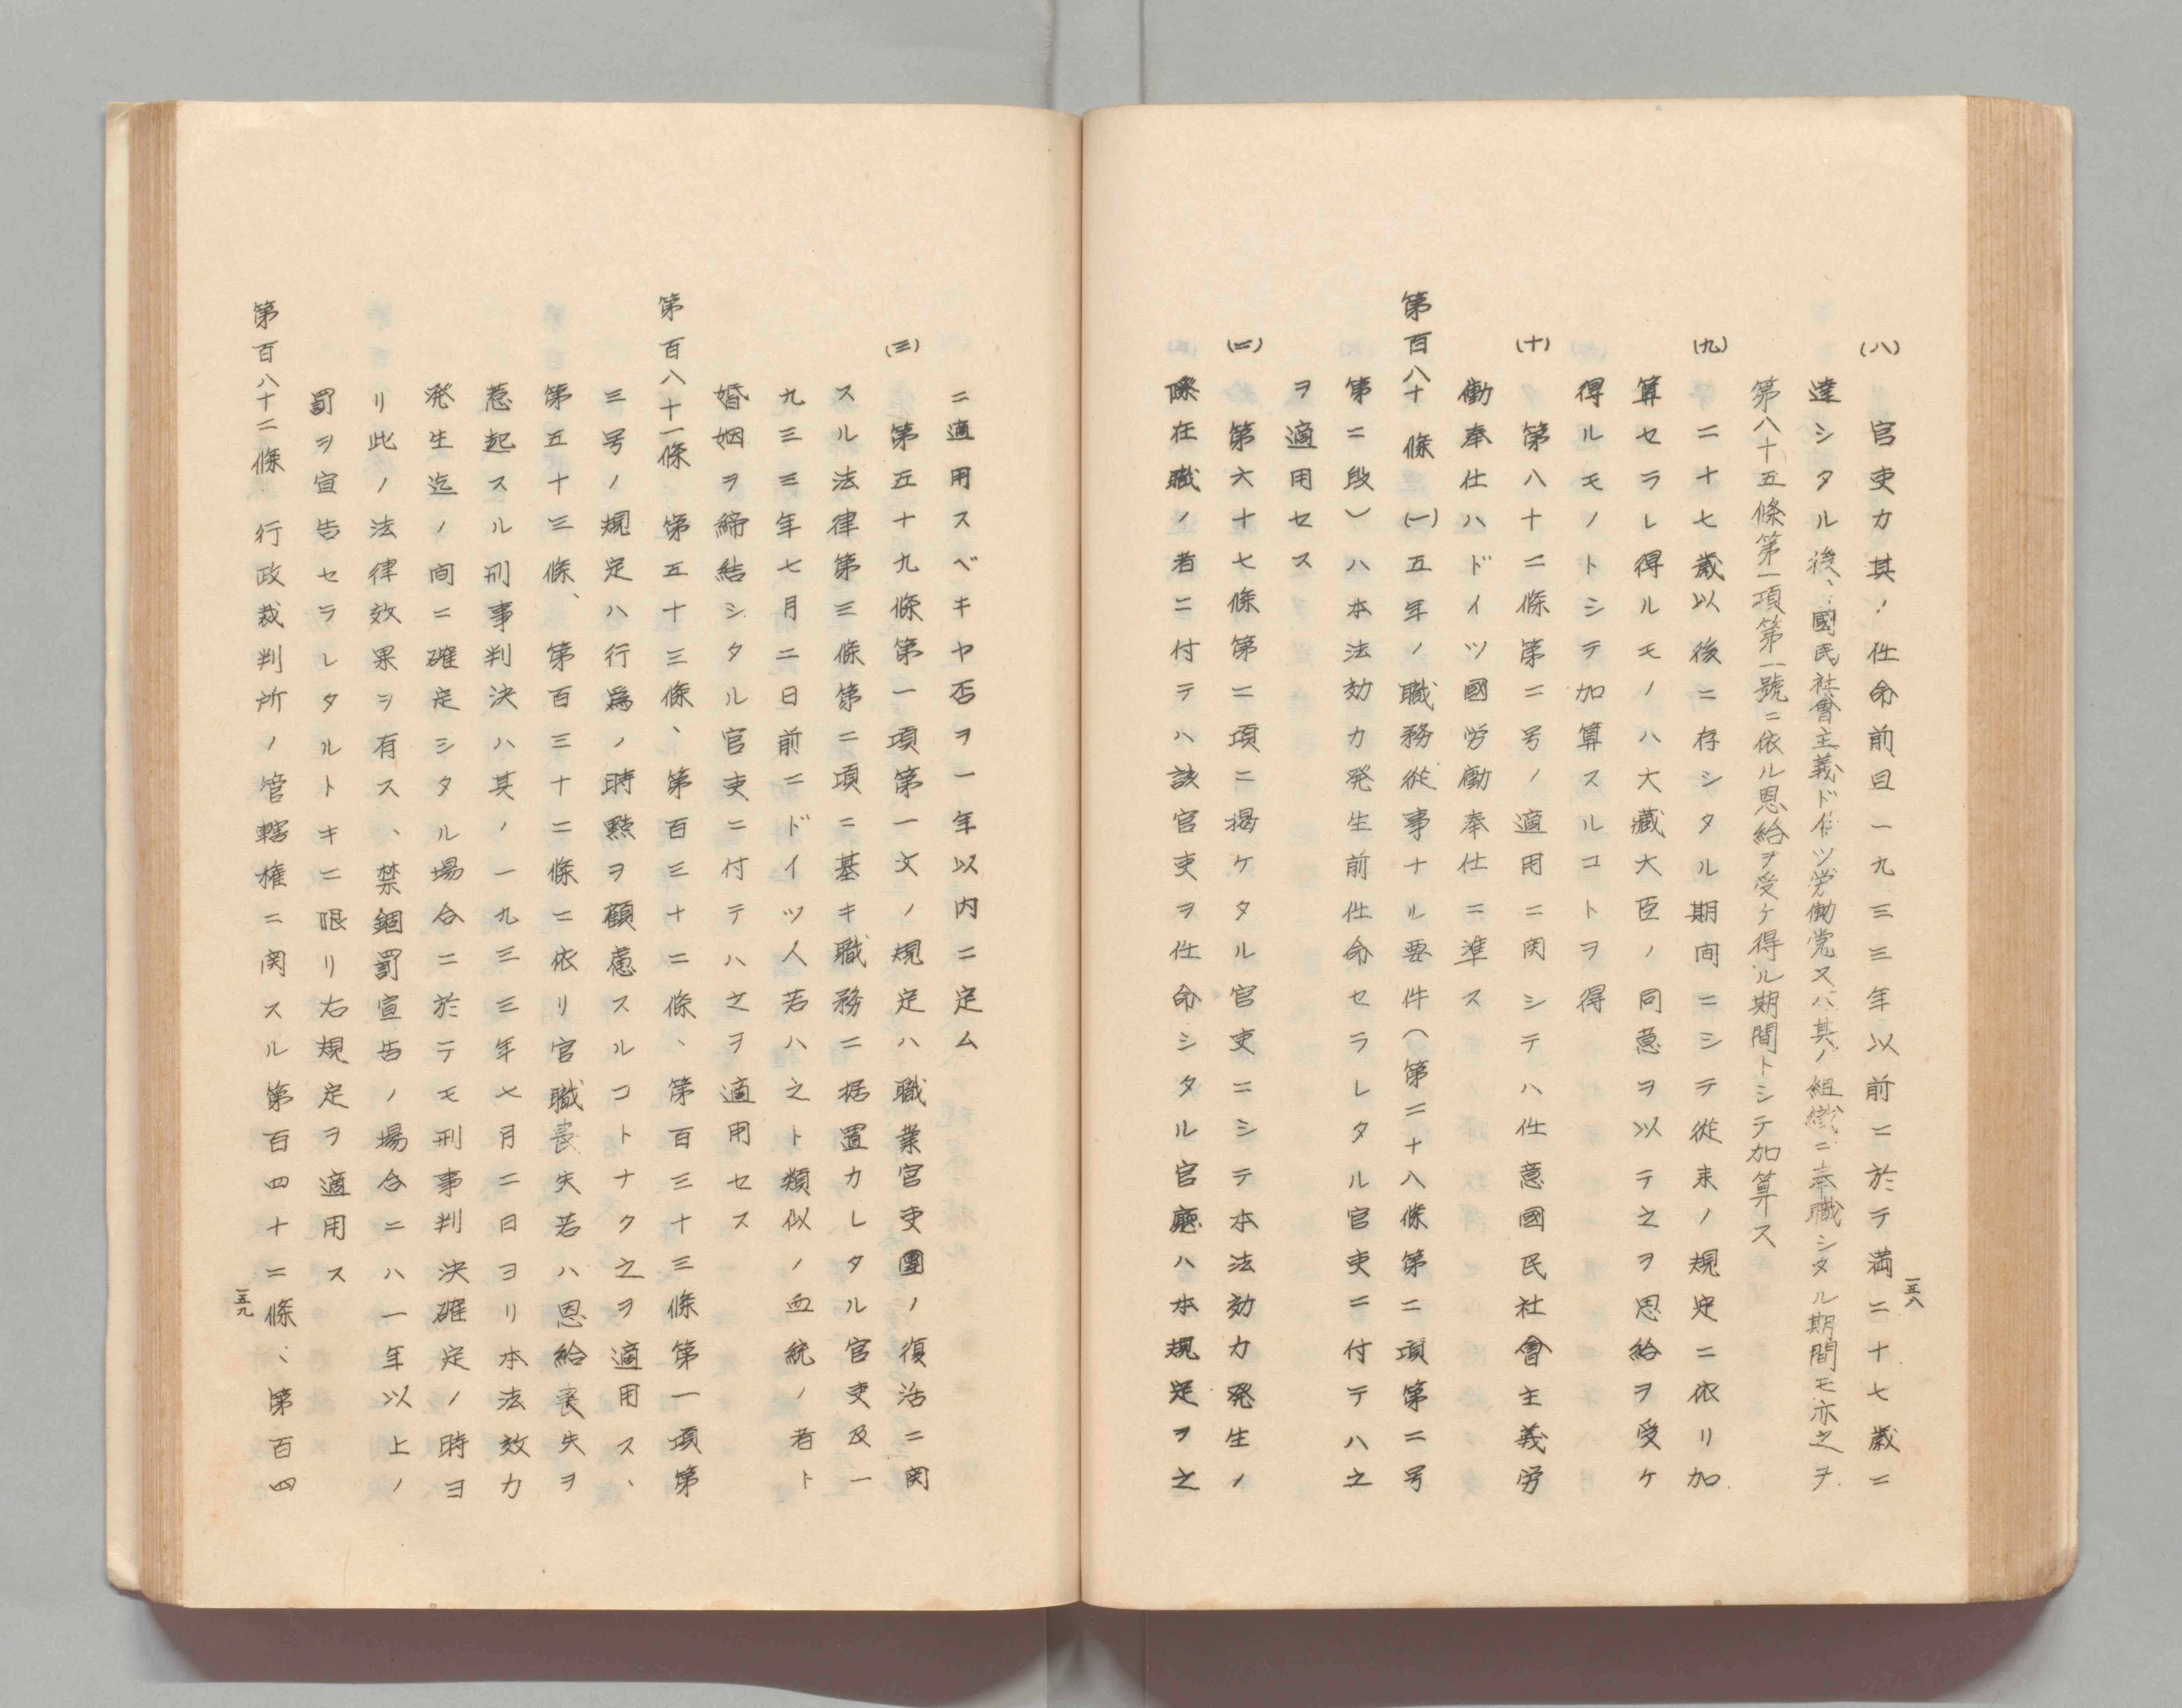 一五八
(八) 官吏カ其ノ任命前且一九三三年以前ニ於テ満二十七歳ニ
達シタル後、國民社會主義ドイツ労働党又ハ其ノ組織ニ奉職シタル期間モ亦之ヲ
第八十五條第一項第一號ニ依ル恩給ヲ受ケ得ル期間トシテ加算ス
(九) 二十七歳以後ニ存シタル期間ニシテ従来ノ規定ニ依リ加
算セラレ得ルモノハ大藏大臣ノ同意ヲ以テ之ヲ恩給ヲ受ケ
得ルモノトシテ加算スルコトヲ得
(十) 第八十二條第二号ノ適用ニ関シテハ任意國民社會主義労
働奉仕ハドイツ國労働奉仕ニ準ス
第百八十條 (一)五年ノ職務従事ナル要件(第二十八條第二項第二号
第二段)ハ本法効力発生前任命セラレタル官吏ニ付テハ之
ヲ適用セス
(二) 第六十七條第二項ニ掲ケタル官吏ニシテ本法効力発生ノ
際在職ノ者ニ付テハ該官吏ヲ任命シタル官廳ハ本規定ヲ之
ニ適用スベキヤ否ヲ一年以内ニ定ム
(三) 第五十九條第一項第一文ノ規定ハ職業官吏團ノ復活ニ関
スル法律第三條第二項ニ基キ職務ニ据置カレタル官吏及一
九三三年七月二日前ニドイツ人若ハ之ト類似ノ血統ノ者ト
婚姻ヲ締結シタル官吏ニ付テハ之ヲ適用セス
第百八十一條 第五十三條、第百三十二條、第百三十三條第一項第
三号ノ規定ハ行爲ノ時點ヲ顧慮スルコトナク之ヲ適用ス、
第五十三條、第百三十二條ニ依リ官職喪失若ハ恩給喪失ヲ
惹起スル刑事判決ハ其ノ一九三三年七月二日ヨリ本法効力
発生迄ノ間ニ確定シタル場合ニ於テモ刑事判決確定ノ時ヨ
リ此ノ法律效果ヲ有ス、禁錮罰宣告ノ場合ニハ一年以上ノ
罰ヲ宣告セラレタルトキニ限リ右規定ヲ適用ス
第百八十二條 行政裁判所ノ管轄権ニ関スル第百四十二條、第百四
一五九